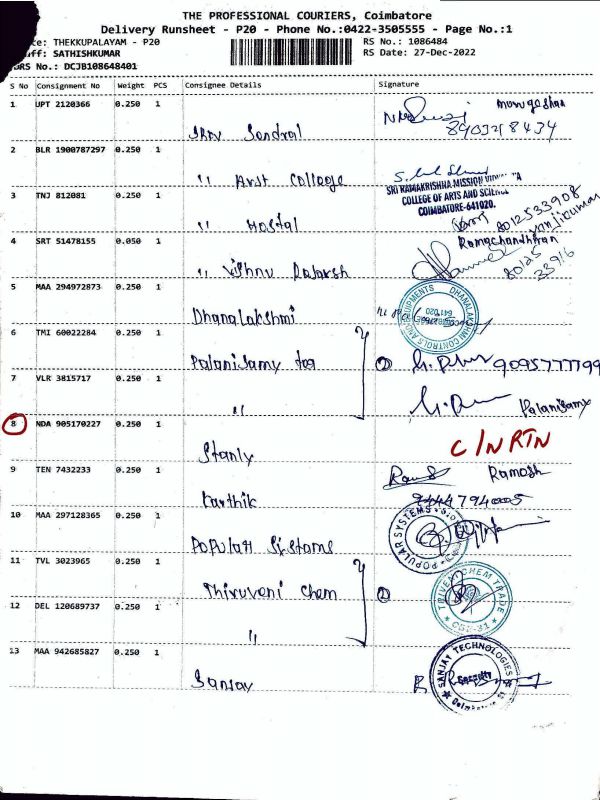 THE PROFESSIONAL COURIERS, Coimbatore
Delivery Runsheet - P20 - Phone No.:0422-3505555 - Page No.:1
THEKKUPALAYAM - P20 RS No.: 1086484
SATHISHKUMAR RS Date: 27-Dec-2022
DRS No.: DCJB108648401
S No Consignment No Weight PCS Consignee Details Signature
1 UPT 2120366 0.250 1
8903218434
2 BLR 1900787297 0.250 1
" Arst College
SRI RAMAKRISHNA MISSION
COLLEGE OF ARTS AND SCIENCE
COIMBATORE-641020.
3 TNJ 812081 0.250 1
" Hostal
8012533908
4 SRT 51478155 0.050 1
Ramachandhiran
" Vishnu
80125
33916
5 MAA 294972873 0.250 1
Dhanalakshmi
DHANALAKSHMI CONTROLS AND EQUIPMENTS
641 020
6 TMI 60022284 0.250 1
Palanisamy 2 9095777799
7 VLR 3815717 0.250 1
" Palanisamy
8 NDA 905170227 0.250 1
Stanly C/N RTN
9 TEN 7432233 0.250 1
Karthik Ramesh
10 MAA 297128365 0.250 1
Popular Sistams
POPULAR SYSTEMS
11 TVL 3023965 0.250 1
Thiruvani Cham 2
TRIVENI CHEM TRADE
CBE-31
12 DEL 120689737 0.250 1
"
13 MAA 942685827 0.250 1
Sanjay
SANJAY TECHNOLOGIES
Security